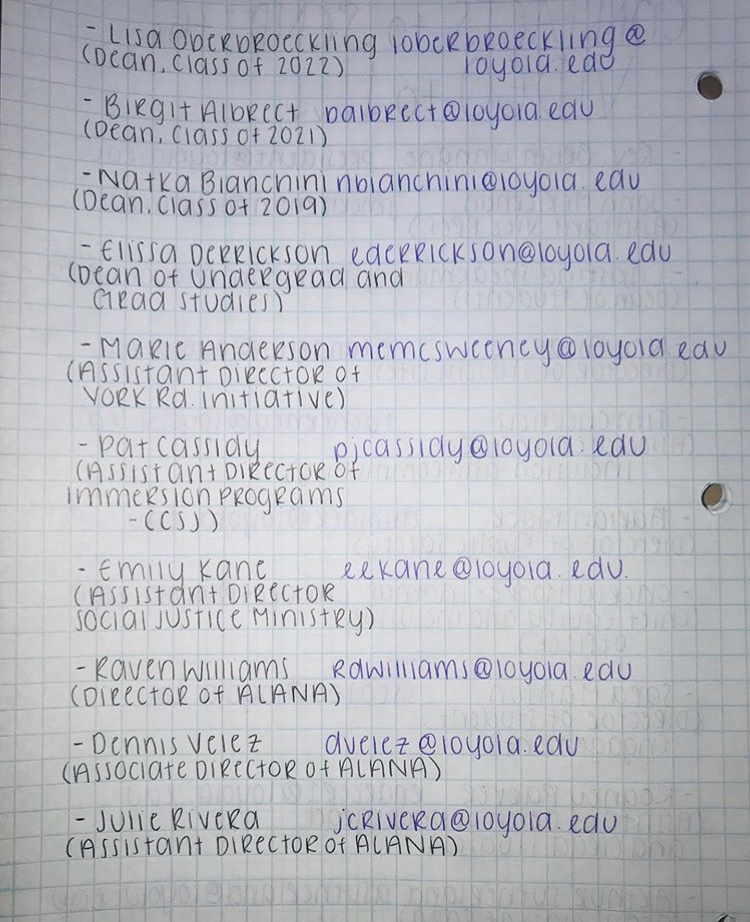 - Lisa Oberbroeckling loberbroeckling@
(Dean, Class of 2022) loyola.edu
- Birgit Albrect balbrect@loyola.edu
(Dean, Class of 2021)
- Natka Bianchini nbianchini@loyola.edu
(Dean, Class of 2019)
- Elissa Derrickson ederrickson@loyola.edu
(Dean of undergrad and
Grad studies)
- Marie Anderson memcsweeney@loyola.edu
(Assistant Director of
York Rd. initiative)
- Pat Cassidy pjcassidy@loyola.edu
(Assistant Director of
immersion programs
- CCSJ)
- Emily Kane eekane@loyola.edu.
(Assistant Director
social justice Ministry)
- Raven Williams rdwilliams@loyola.edu
(Director of ALANA)
- Dennis Velez dvelez@loyola.edu
(Associate Director of ALANA)
- Julie Rivera jcrivera@loyola.edu
(Assistant Director of ALANA)